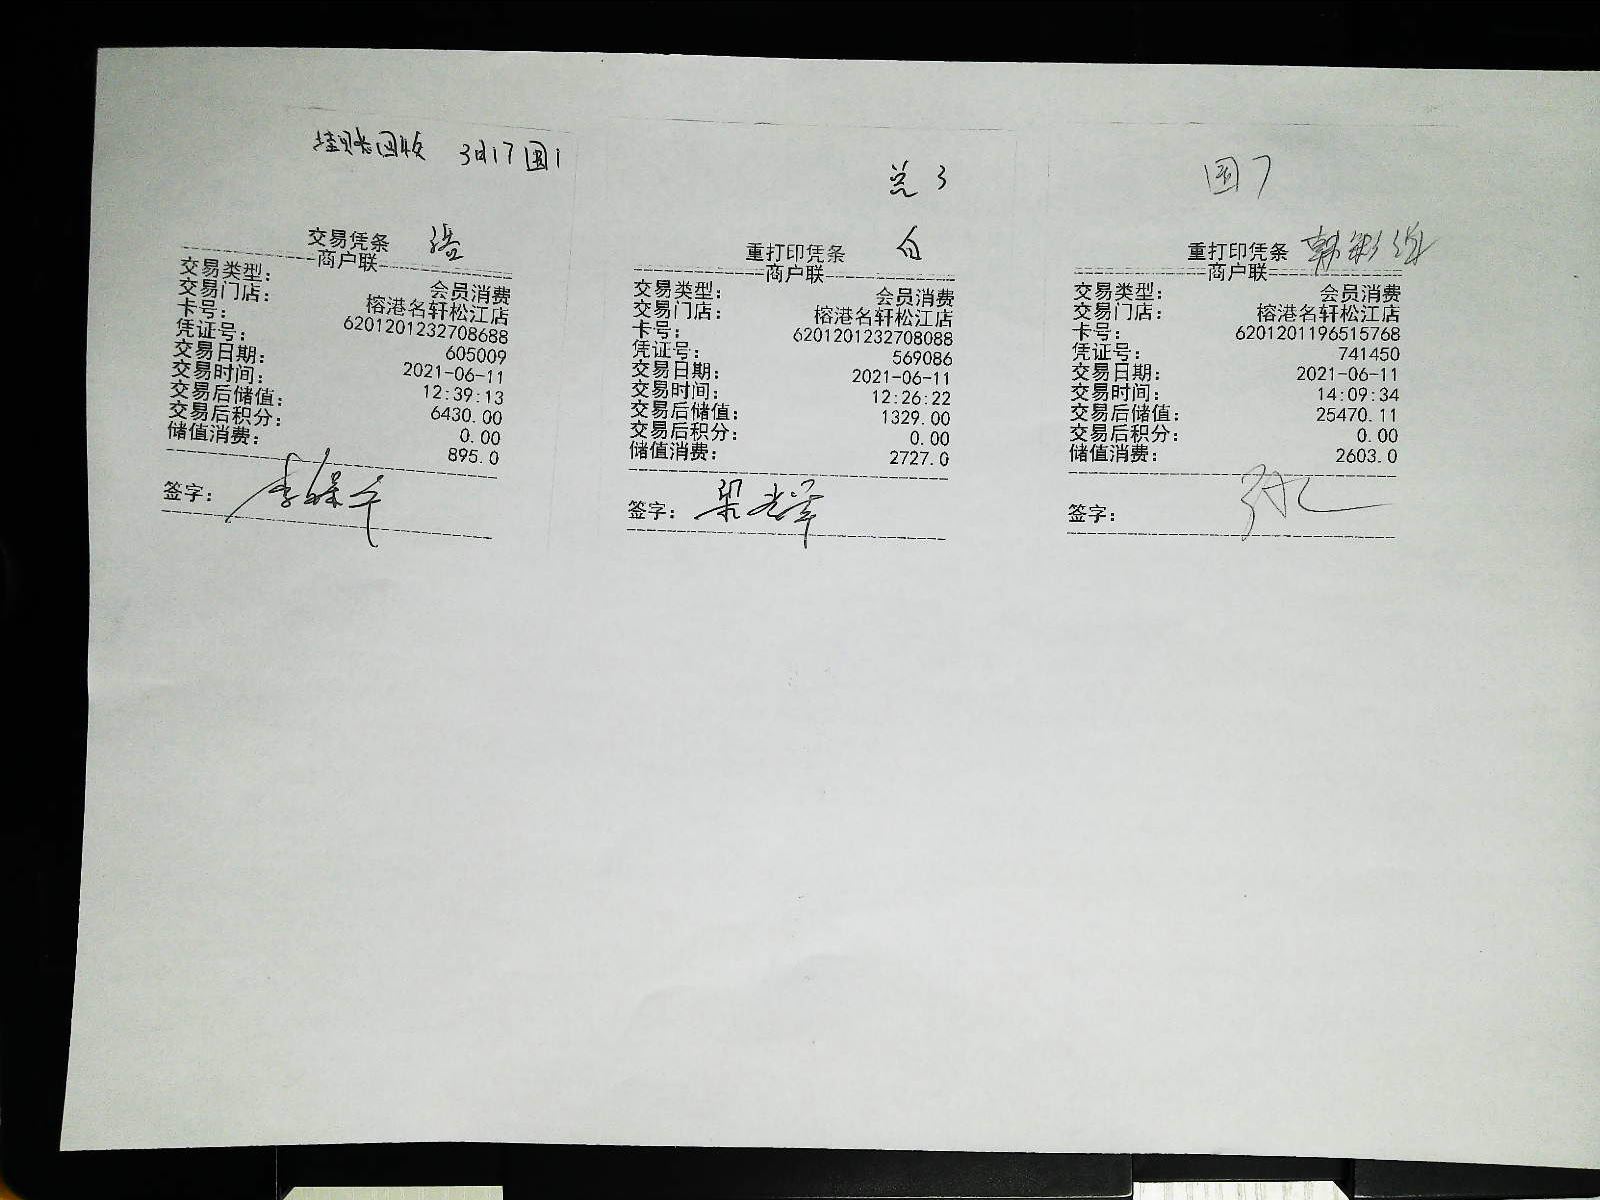 挂账回收 3日17 国1
交易凭条
商户联
交易类型： 会员消费
交易门店： 榕港名轩松江店
卡号： 6201201232708688
凭证号： 605009
交易日期： 2021-06-11
交易时间： 12:39:13
交易后储值： 6430.00
交易后积分： 0.00
储值消费： 895.0
签字：
兰3
重打印凭条 白
商户联
交易类型： 会员消费
交易门店： 榕港名轩松江店
卡号： 6201201232708088
凭证号： 569086
交易日期： 2021-06-11
交易时间： 12:26:22
交易后储值： 1329.00
交易后积分： 0.00
储值消费： 2727.0
签字： 梁光军
国7
重打印凭条
商户联
交易类型： 会员消费
交易门店： 榕港名轩松江店
卡号： 6201201196515768
凭证号： 741450
交易日期： 2021-06-11
交易时间： 14:09:34
交易后储值： 25470.11
交易后积分： 0.00
储值消费： 2603.0
签字：